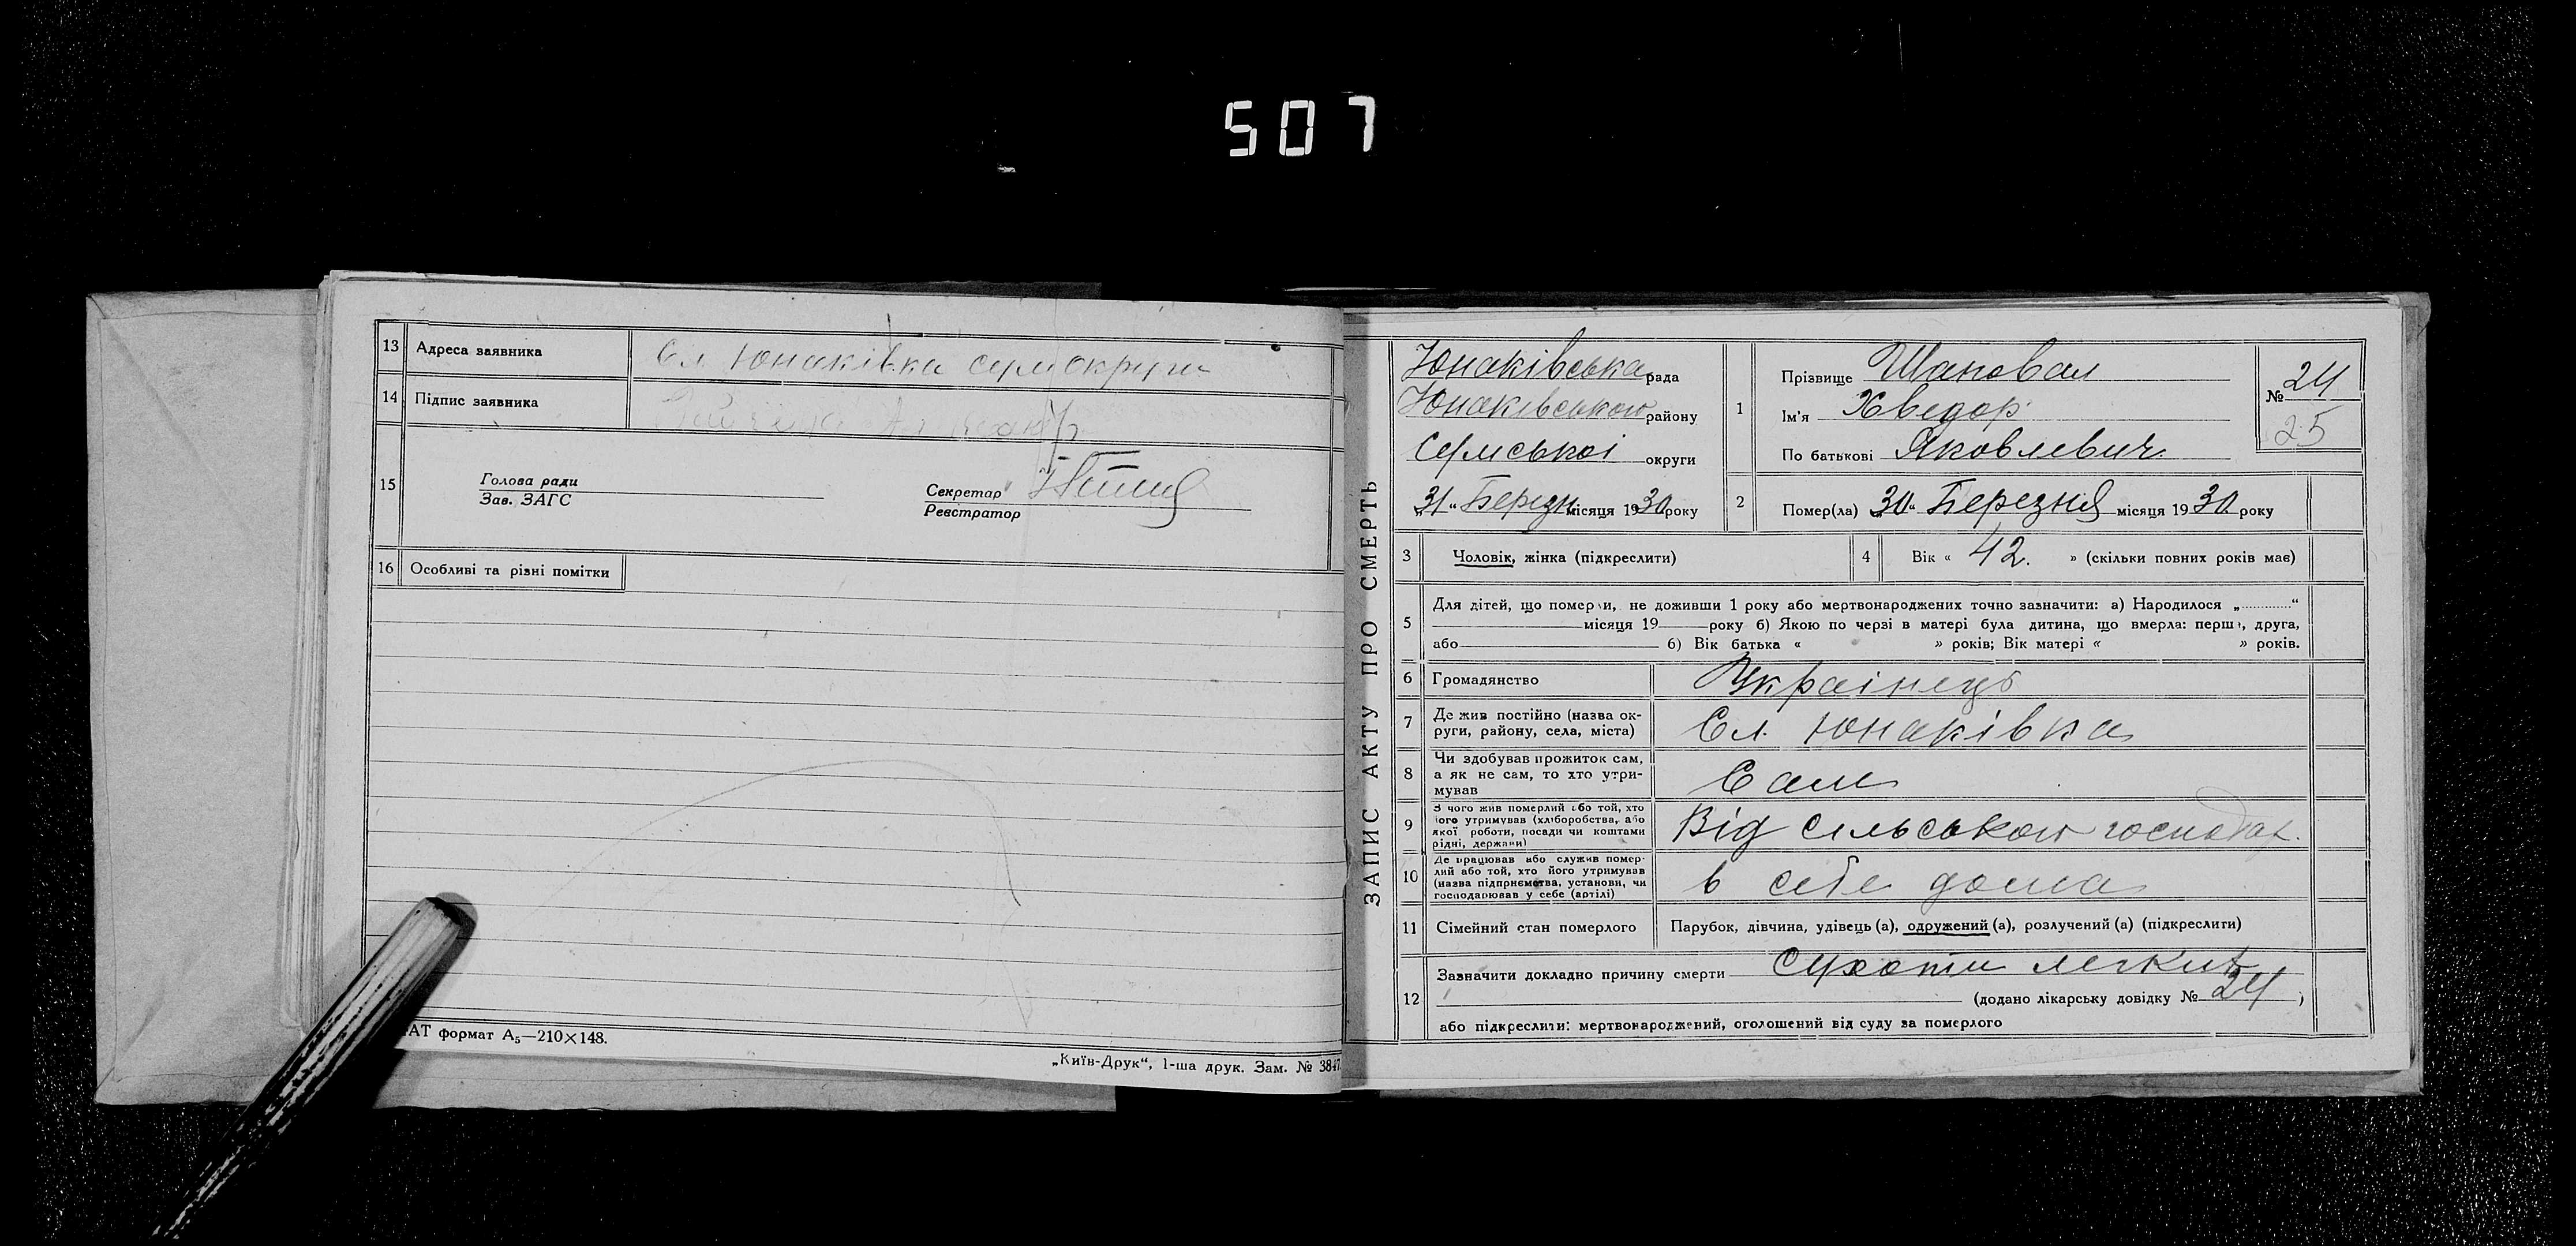 507
13 Адреса заявника Сл Юнаківка сумокруги
14 Підпис заявника
15 Голова ради
Зав. ЗАГС
Секретар
Реєстратор
16 Особливі та різні помітки
АТ формат А₅—210×148.
„Київ-Друк“, 1-ша друк. Зам. № 3847
ЗАПИС АКТУ ПРО СМЕРТЬ
Юнаківська рада
Юнаківського району
Сумської округи
„31“ Березн місяця 1930 року
1 Прізвище Шаповал
Ім'я Хведор
По батькові Яковлевич
№ 24
25
2 Помер(ла) „30“ Березня місяця 1930 року
3 Чоловік, жінка (підкреслити)
4 Вік « 42. » (скільки повних років має)
5 Для дітей, що померли, не доживши 1 року або мертвонароджених точно зазначити: а) Народилося „............“
місяця 19 року б) Якою по черзі в матері була дитина, що вмерла: перша, друга,
або б) Вік батька « » років; Вік матері « » років.
6 Громадянство Українець
7 Де жив постійно (назва ок-
руги, району, села, міста) Сл. Юнаківка
8 Чи здобував прожиток сам,
а як не сам, то хто утри-
мував Сам
9 З чого жив померлий або той, хто
його утримував (хліборобства, або
якої роботи, посади чи коштами
рідні, держави) Від сільського господар.
10 Де працював або служив помер-
лий або той, хто його утримував
(назва підприємства, установи, чи
господарював у себе (артілі) в себе дома
11 Сімейний стан померлого Парубок, дівчина, удівець (а), одружений (а), розлучений (а) (підкреслити)
12 Зазначити докладно причину смерти Сухоти легких
(додано лікарську довідку № 24 )
або підкреслити: мертвонароджений, оголошений від суду за померлого